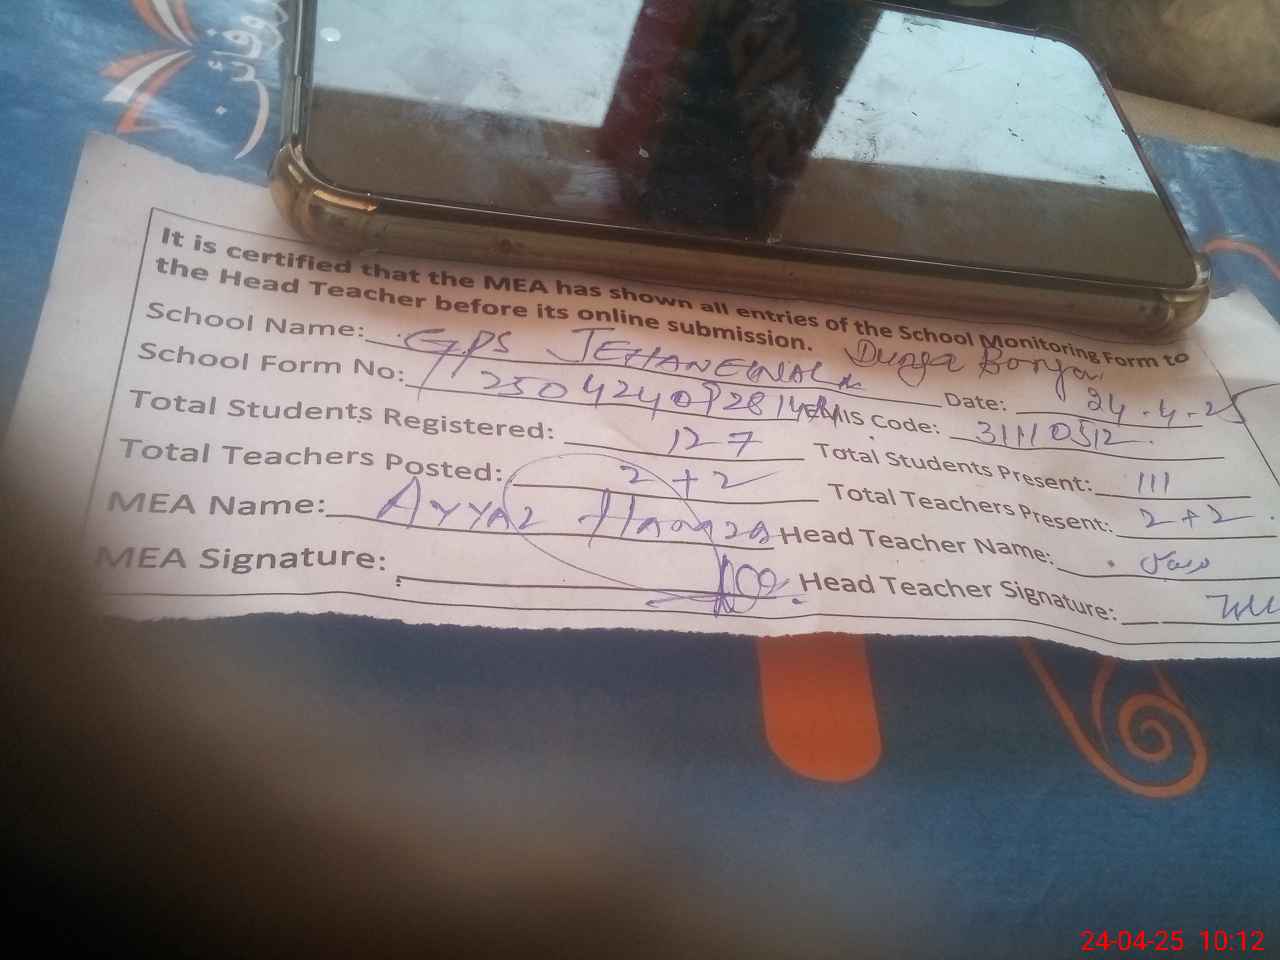 It is certified that the MEA has shown all entries of the School Monitoring Form to
the Head Teacher before its online submission.
School Name: GPS JEHANEWALA Durga Borya
School Form No: Date: 24-4-25
EMIS Code: 31110512
Total Students Registered: 127 Total Students Present: 111
Total Teachers Posted: 2+2 Total Teachers Present: 2+2
MEA Name: AYYAZ Hamza Head Teacher Name:
MEA Signature: Head Teacher Signature:
24-04-25 10:12